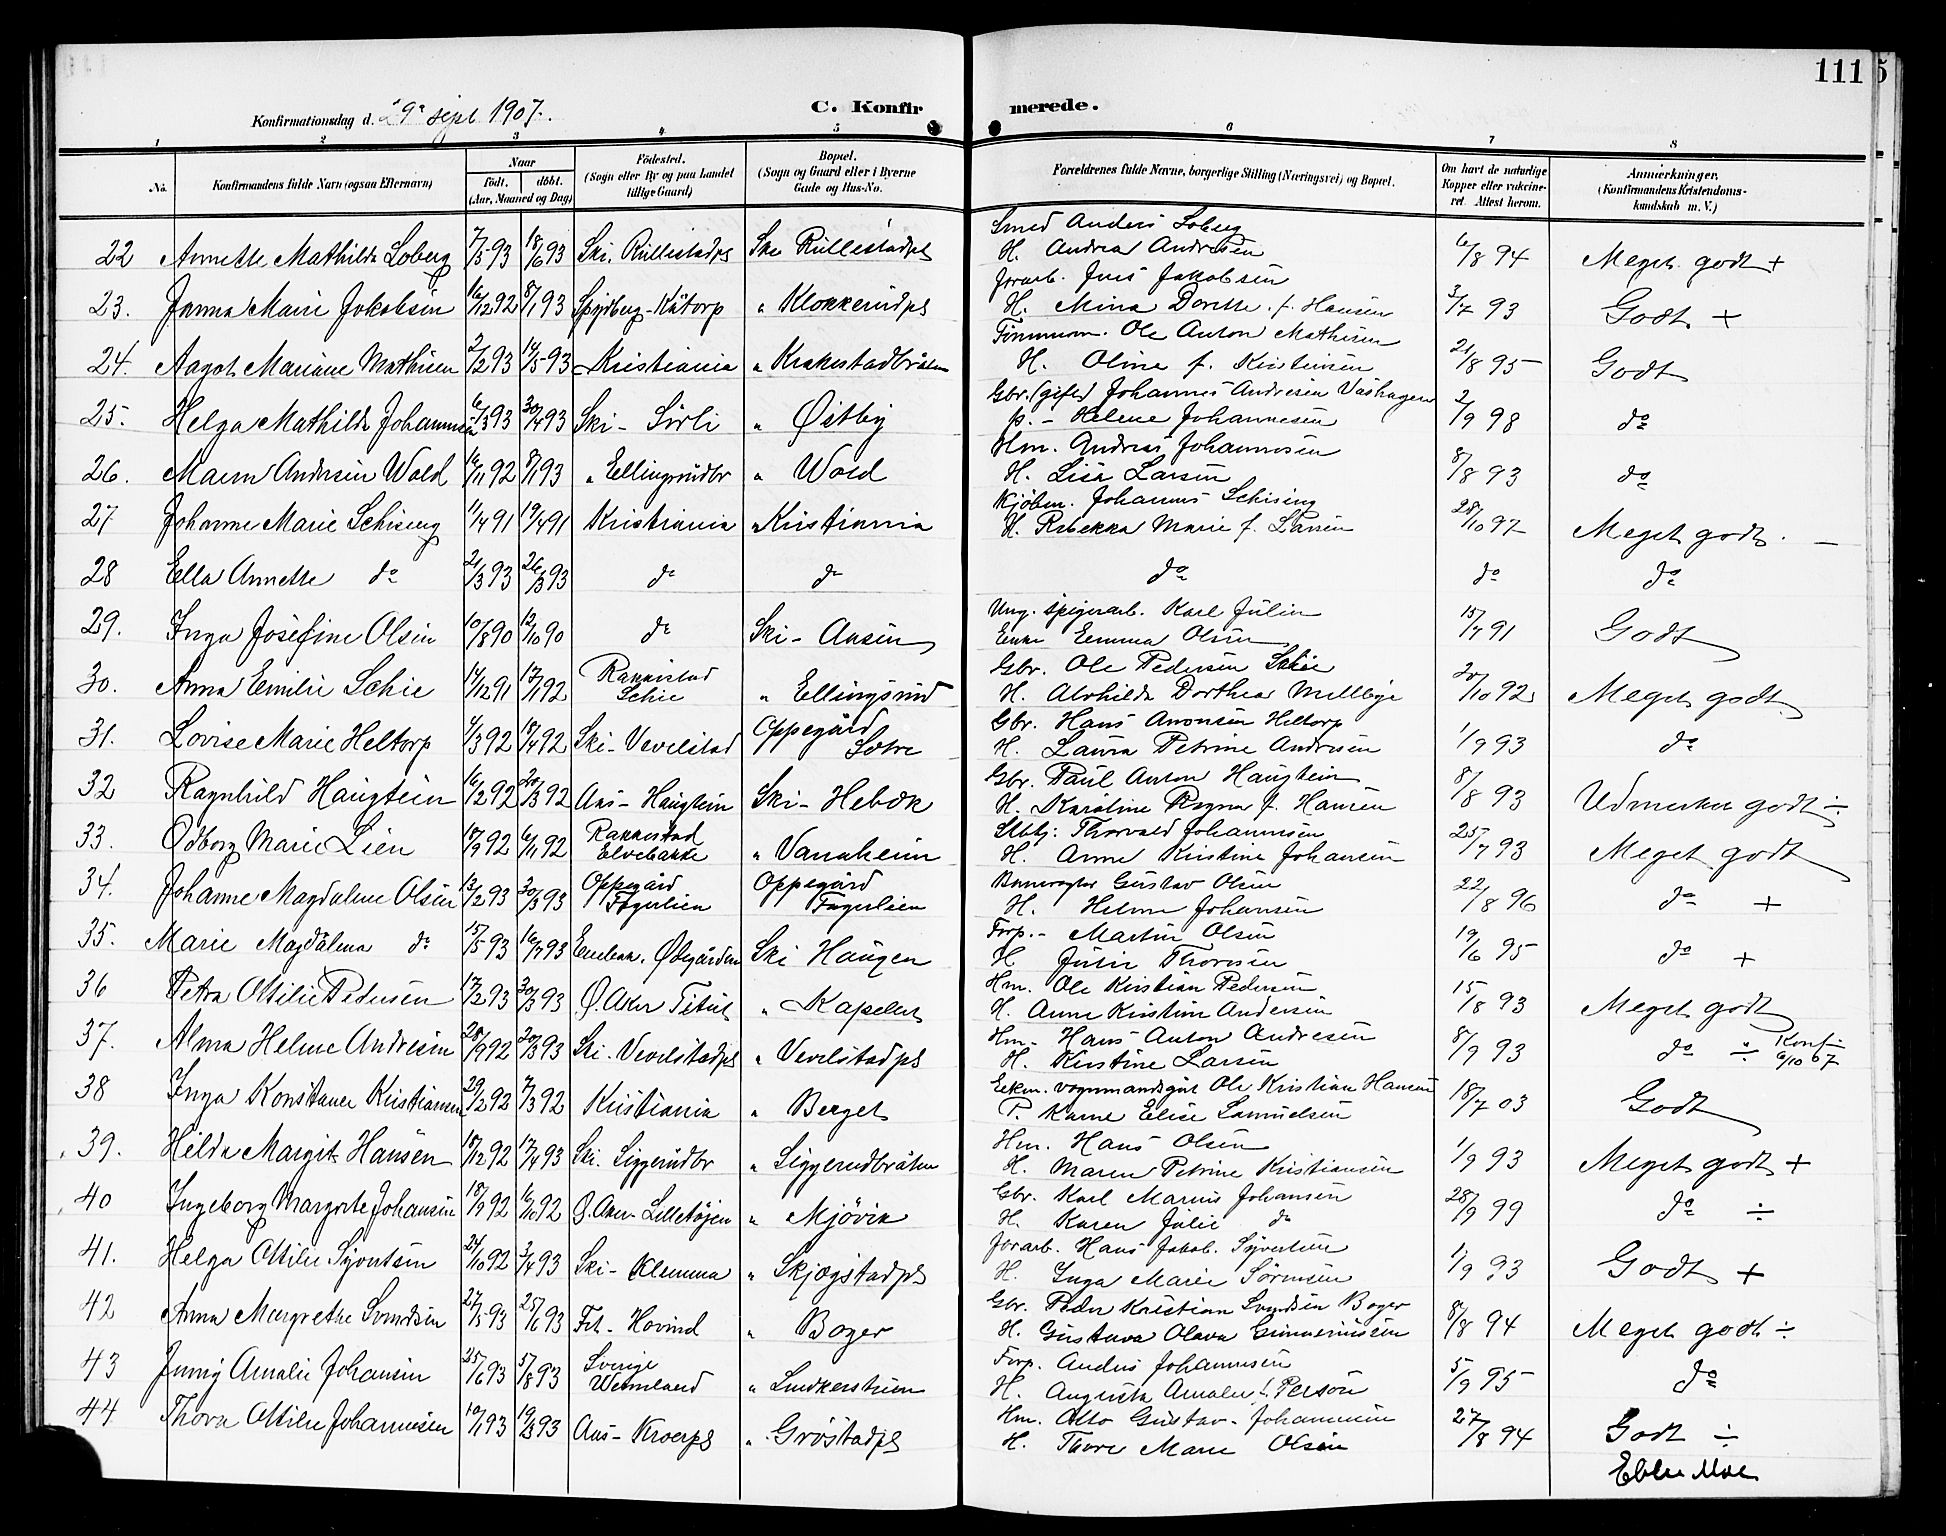 111
Konfirmationsdag d. 29 sept 1907.
C. Konfirmerede.
1 2 3 4 5 6 7 8
No. Konfirmandens fulde Navn (ogsaa Efternavn) Naar født. døbt. (Aar, Maaned og Dag) Fødested. (Sogn eller By og paa Landet tillige Gaard) Bopæl. (Sogn og Gaard eller i Byerne Gade og Hus-No. Forældrenes fulde Navne, borgerlige Stilling (Næringsvei) og Bopæl. Om havt de naturlige Kopper eller vakcineret. Attest herom. Anmerkninger. (Konfirmandens Kristendomskundskab m. V.)
22 Annette Mathilde Loberg 7/5 93 18/6 93 Ski. Rullestadpl Ski Rullestadpl Smed Anders Loberg H. Andrea Andresen 6/8 94 Meget godt +
23. Janna Marie Jakobsen 16/12 92 8/1 93 Spydberg - Kåtorp " Klokkerudpl Jorarb. Jens Jakobsen H. Mina Dorthe f. Hansen 3/7 93 Godt +
24. Aagot Mariane Mathisen 2/2 93 14/5 93 Kristiania " Krakestadbråten Tømmerm. Ole Anton Mathisen H. Oline f. Kristensen 21/8 95 Godt
25. Helga Mathilde Johannesen 6/3 93 30/4 93 Ski - Sørli " Østby Gbr. (gift) Johannes Andresen Vashagen p. - Helene Johannesen 2/9 98 do
26. Maren Andersen Wold 16/11 92 8/1 93 " Ellingsrudbr " Wold Hm. Andreas Johannesen H. Lisa Larsen 8/8 93 do
27 Johanne Marie Schising 11/4 91 19/4 91 Kristiania " Kristiania Kjøbm. Johannes Schising H. Rebekka Marie f. Larsen 28/10 97 Meget godt. -
28 Ella Annette do 21/3 93 26/3 93 do do do do do
29. Inga Josefine Olsen 10/8 90 12/10 90 do Ski - Aasen Ung. spigerarb. Karl Julin Enke Emma Olsen 15/7 91 Godt
30. Anna Emilie Schie 14/12 91 17/1 92 Rakkestad Schie " Ellingsrud Gbr. Ole Pedersen Schie H. Alvhilde Dorthea Mellbye 20/10 92 Meget godt
31. Lovise Marie Heltorp 4/3 92 18/4 92 Ski - Vevelstad Oppegård Sætre Gbr. Hans Aronsen Heltorp H. Laura Petrine Andresen 1/9 93 do
32 Ragnhild Haugtein 16/2 92 20/3 92 Aas - Haugtein Ski - Hebæk Gbr. Paul Anton Haugtein H. Karoline Ragna f. Hansen 8/8 93 Udmerket godt ÷
33. Odborg Marie Lien 18/9 92 6/11 92 Rakkestad Elvebakke " Vanaheim Thorvald Johannesen H. Anne Kirstine Johansen 25/7 93 Meget godt
34. Johanne Magdalene Olsen 13/2 93 30/3 93 Oppegård Fagerlien Oppegård Fagerlien Banevogter Gustav Olsen H. Helene Johansen 22/8 96 do +
35. Marie Magdalena do 15/5 93 16/7 93 Enebak. Ødegården Ski Haugen Forp. - Martin Olsen H Julie Thoresen 19/6 95 do +
36 Petra Otilie Pedersen 17/2 93 30/3 93 Ø. Aker Tetut " Kapellet Hm. Ole Kristian Pedersen H. Anne Kirstine Andersen 15/8 93 Meget godt
37. Alma Helene Andresen 28/9 92 20/3 93 Ski. Vevelstadpl " Vevelstadpl Hm. Hans Anton Andresen H. Kirstine Larsen 8/9 93 do ÷ Konf. 6/10 07
38 Inga Konstance Kristiansen 29/2 92 7/3 92 Kristiania " Berget Ekm. vognmandsgut Ole Kristian Hansen P. Karne Elise Samuelsen 18/7 03 Godt
39. Hilda Margit Hansen 18/12 92 17/4 93 Ski. Siggerudbr " Siggerudbråten Hm. Hans Olsen H. Maren Petrine Kristiansen 1/9 93 Meget godt +
40 Ingeborg Margrete Johansen 18/9 92 16/10 92 Ø. Aker Lilletøjen " Mjövik Gbr. Karl Marius Johansen H. Karen Julie do 28/9 99 do ÷
41. Helga Otilie Syvertsen 24/10 92 3/4 93 Ski - Klemma " Skjøgstadpl Jorarb. Hans Jakob. Syvertsen H. Inga Marie Sörensen 1/9 93 Godt +
42 Anna Margrethe Svendsen 27/5 93 25/6 93 Fet - Hovind " Boger Gbr. Peder Kristian Svendsen Boger H. Gustava Olava Gunnerussen 8/8 94 Meget godt ÷
43 Jenny Amalie Johansen 25/6 93 5/8 93 Sverige Wermland " Forp. Anders Johannesen H. Augusta Amalie f. Person 5/9 95 do
44 Thora Otilie Johannesen 10/1 93 19/3 93 Aas - Kroerpl " Gröstadpl Hm. Otto Gustav Johannesen H. Thora Marie Olsen 27/8 94 Godt ÷